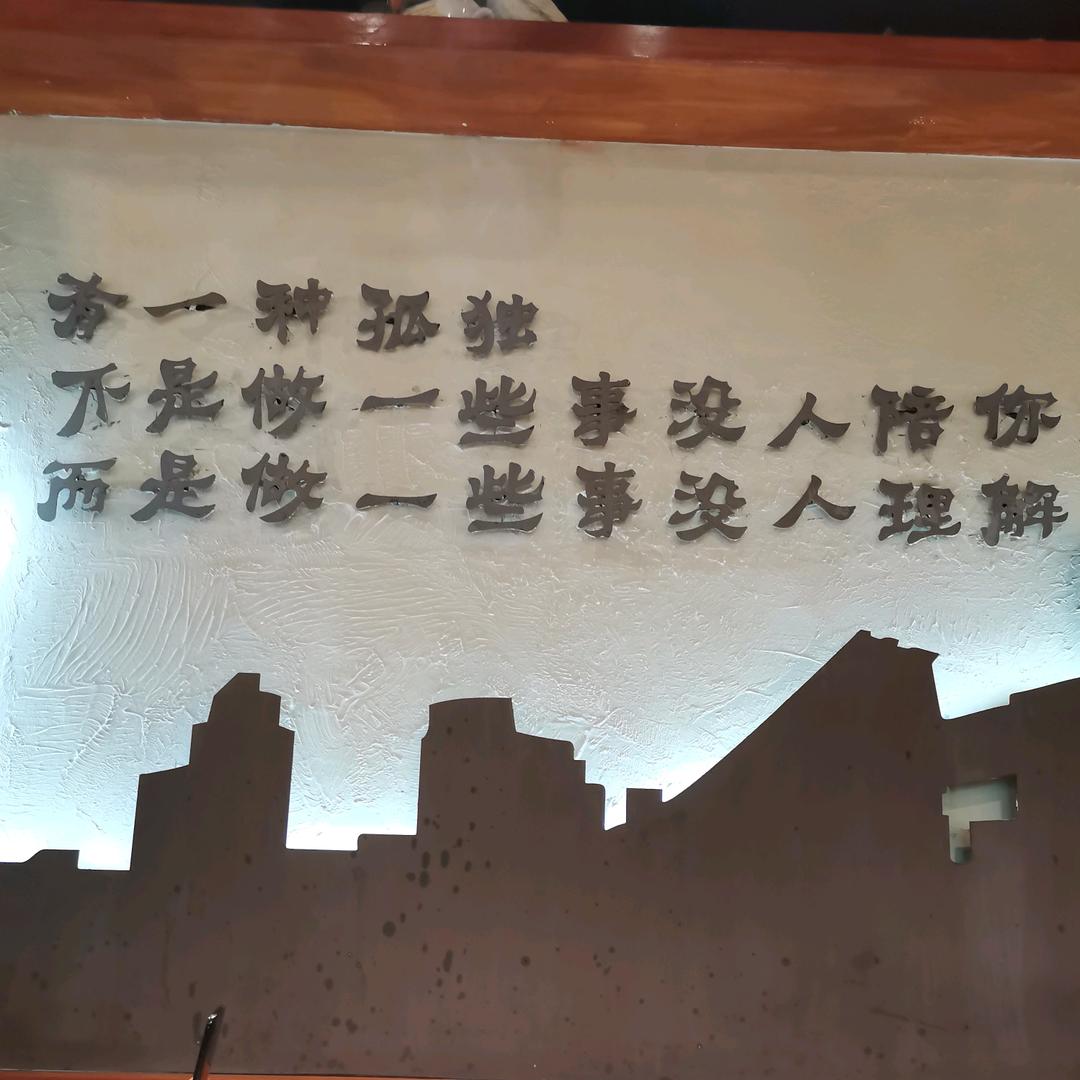 有一种孤独
不是做一些事没人陪你
而是做一些事没人理解